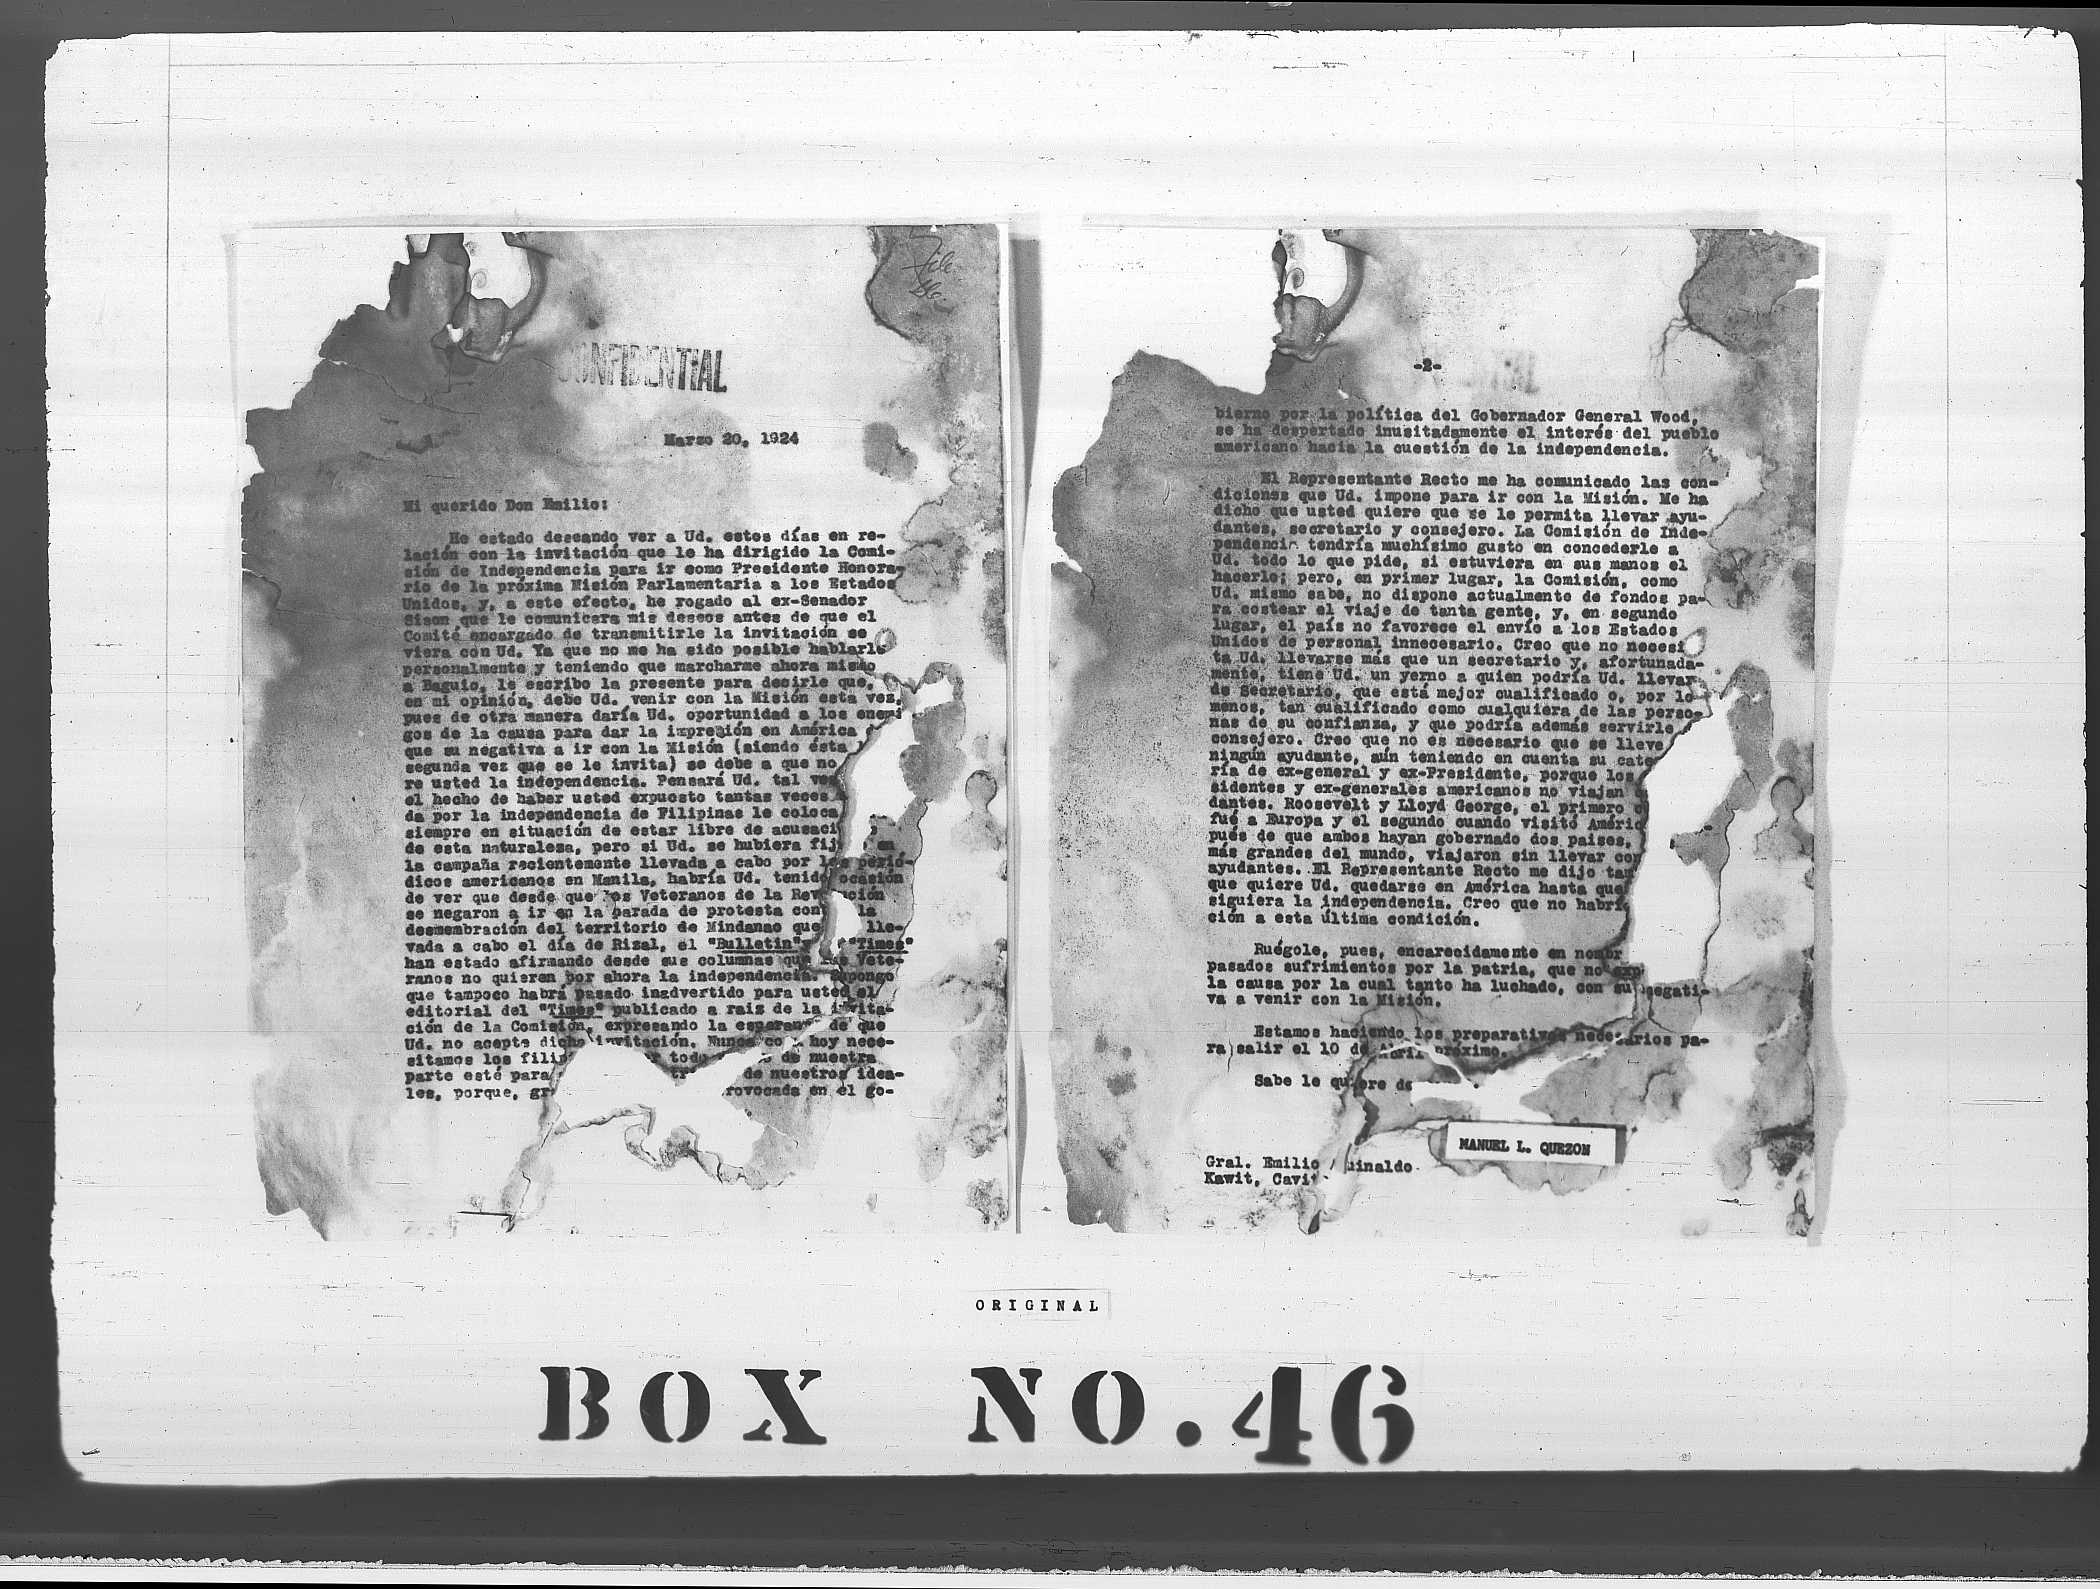 File
CONFIDENTIAL
Marzo 20, 1924
Mi querido Don Emilio:
He estado deseando ver a Ud. estos días en re-
lación con la invitación que le ha dirigido la Comi-
sión de Independencia para ir como Presidente Honora-
rio de la próxima Misión Parlamentaria a los Estados
Unidos, y, a este efecto, he rogado al ex-Senador
Sison que le comunicara mis deseos antes de que el
Comité encargado de transmitirle la invitación se
viera con Ud. Ya que no me ha sido posible hablarle
personalmente y teniendo que marcharme ahora mismo
a Baguio, le escribo la presente para decirle que,
en mi opinión, debe Ud. venir con la Misión esta vez,
pues de otra manera daría Ud. oportunidad a los enemi
gos de la causa para dar la impresión en América
que su negativa a ir con la Misión (siendo ésta
segunda vez que se le invita) se debe a que no
re usted la independencia. Pensará Ud. tal vez
el hecho de haber usted expuesto tantas veces
da por la independencia de Filipinas le coloca
siempre en situación de estar libre de acusaci
de esta naturaleza, pero si Ud. se hubiera fij en
la campaña recientemente llevada a cabo por los perió-
dicos americanos en Manila, habría Ud. tenido ocasión
de ver que desde que los Veteranos de la Rev ción
se negaron a ir en la parada de protesta con la
desmembración del territorio de Mindanao que lle-
vada a cabo el día de Rizal, el "Bulletin" y "Times"
han estado afirmando desde sus columnas que los Vete-
ranos no quieren por ahora la independencia. Supongo
que tampoco habrá pasado inadvertido para usted el
editorial del "Times" publicado a raiz de la invita-
ción de la Comisión, expresando la esperanza de que
Ud. no acepte dicha invitación. Nunca co hoy nece-
sitamos los filip todo de nuestra
parte esté para tr de nuestros idea-
les, porque, gr rovocada en el go-
-2-
bierno por la política del Gobernador General Wood,
se ha despertado inusitadamente el interés del pueblo
americano hacia la cuestión de la independencia.
El Representante Recto me ha comunicado las con-
diciones que Ud. impone para ir con la Misión. Me ha
dicho que usted quiere que se le permita llevar ayu-
dantes, secretario y consejero. La Comisión de Inde-
pendencia tendría muchísimo gusto en concederle a
Ud. todo lo que pide, si estuviera en sus manos el
hacerlo; pero, en primer lugar, la Comisión, como
Ud. mismo sabe, no dispone actualmente de fondos pa-
ra costear el viaje de tanta gente, y, en segundo
lugar, el país no favorece el envío a los Estados
Unidos de personal innecesario. Creo que no necesi
ta Ud. llevarse más que un secretario y, afortunada-
mente, tiene Ud. un yerno a quien podría Ud. llevar
de Secretario, que está mejor cualificado o, por lo
menos, tan cualificado como cualquiera de las perso-
nas de su confianza, y que podría además servirle
consejero. Creo que no es necesario que se lleve
ningún ayudante, aún teniendo en cuenta su cate
ría de ex-general y ex-Presidente, porque los
sidentes y ex-generales americanos no viajan
dantes. Roosevelt y Lloyd George, el primero
fué a Europa y el segundo cuando visitó Améric
pués de que ambos hayan gobernado dos paises,
más grandes del mundo, viajaron sin llevar con
ayudantes. El Representante Recto me dijo tam
que quiere Ud. quedarse en América hasta que
siguiera la independencia. Creo que no habrí
ción a esta última condición.
Ruégole, pues, encarecidamente en nombr
pasados sufrimientos por la patria, que no exp
la causa por la cual tanto ha luchado, con su negati-
va a venir con la Misión.
Estamos haciendo los preparativos necesarios pa-
ra salir el 10 de Abril próximo.
Sabe le quiere de
MANUEL L. QUEZON
Gral. Emilio uinaldo
Kawit, Cavit
ORIGINAL
BOX NO. 46